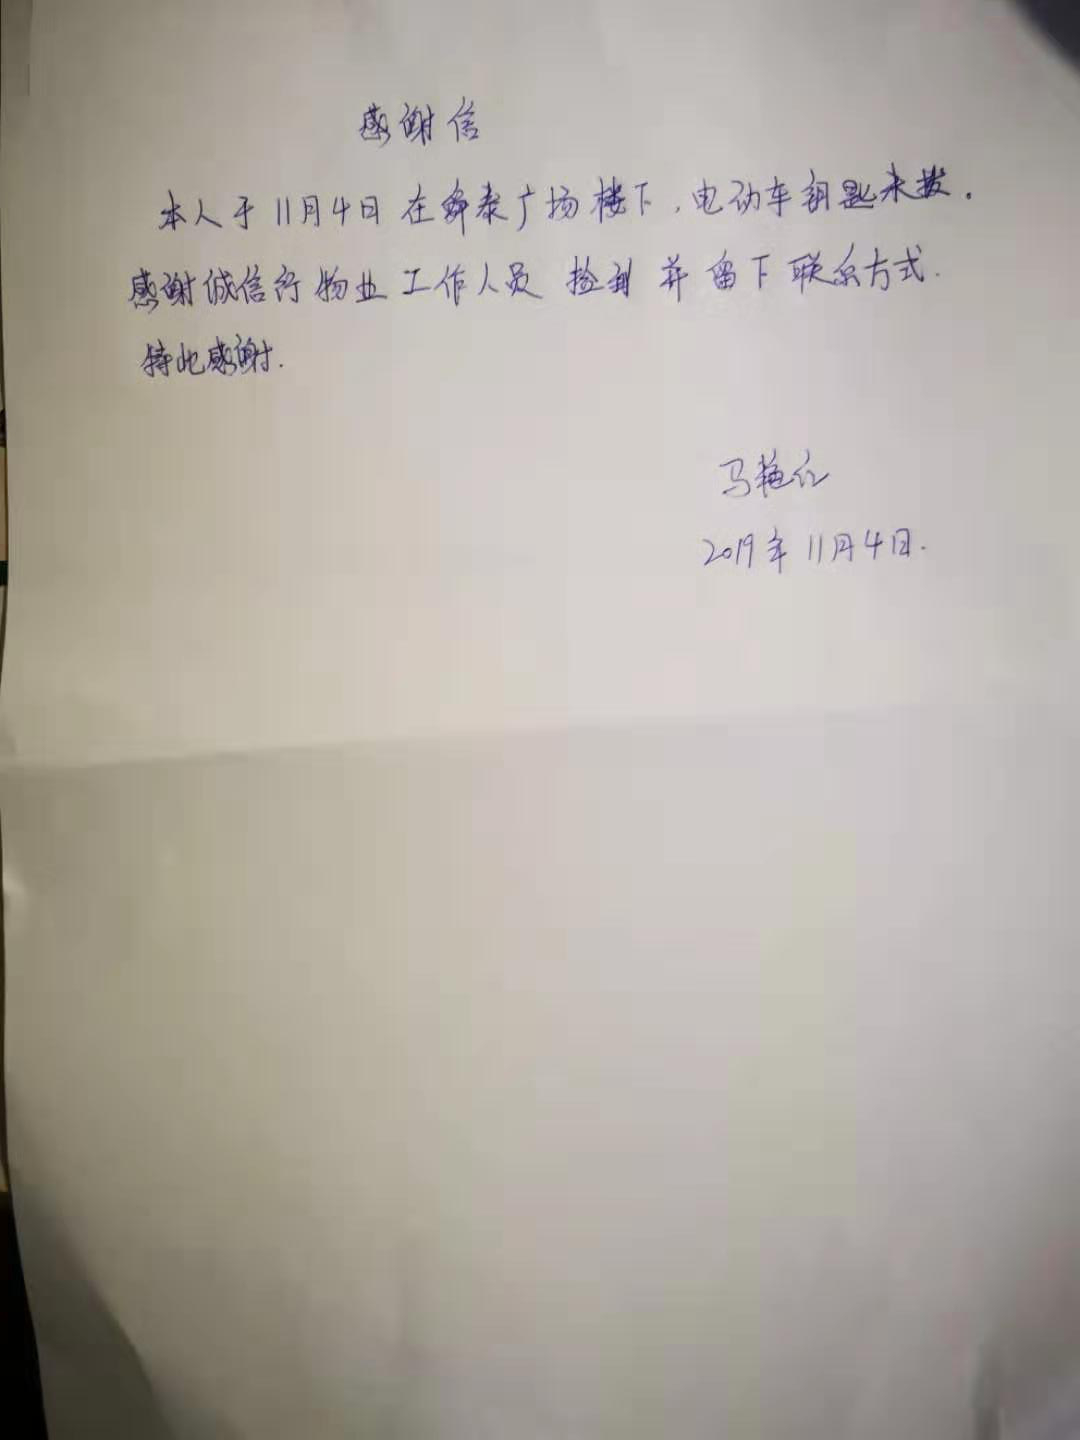 感谢信
本人于11月4日在舜泰广场楼下,电动车钥匙未拔.
感谢诚信行物业工作人员捡到并留下联系方式.
特此感谢.
马艳红
2019年11月4日.